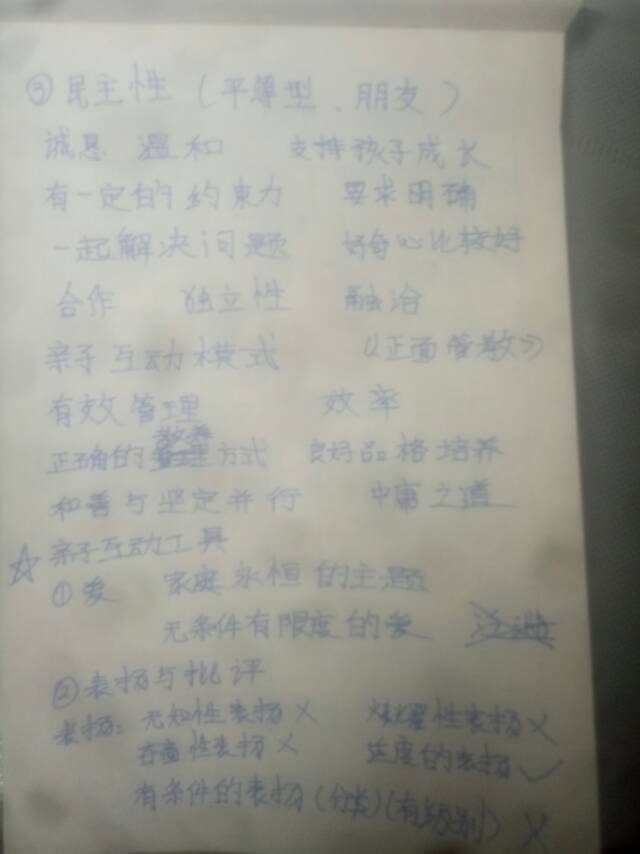 ③ 民主性（平等型、朋友）
诚恳 温和 支持孩子成长
有一定的约束力 要求明确
一起解决问题 好奇心比较好
合作 独立性 融洽
亲子互动模式 《正面管教》
有效管理 效率
正确的教养方式 良好品格培养
和善与坚定并行 中庸之道
☆ 亲子互动工具
① 爱 家庭永恒的主题
无条件有限度的爱
② 表扬与批评
表扬：无知性表扬 × 炫耀性表扬 ×
吝啬性表扬 × 适度的表扬 ✓
有条件的表扬（分类）（有级别） ×